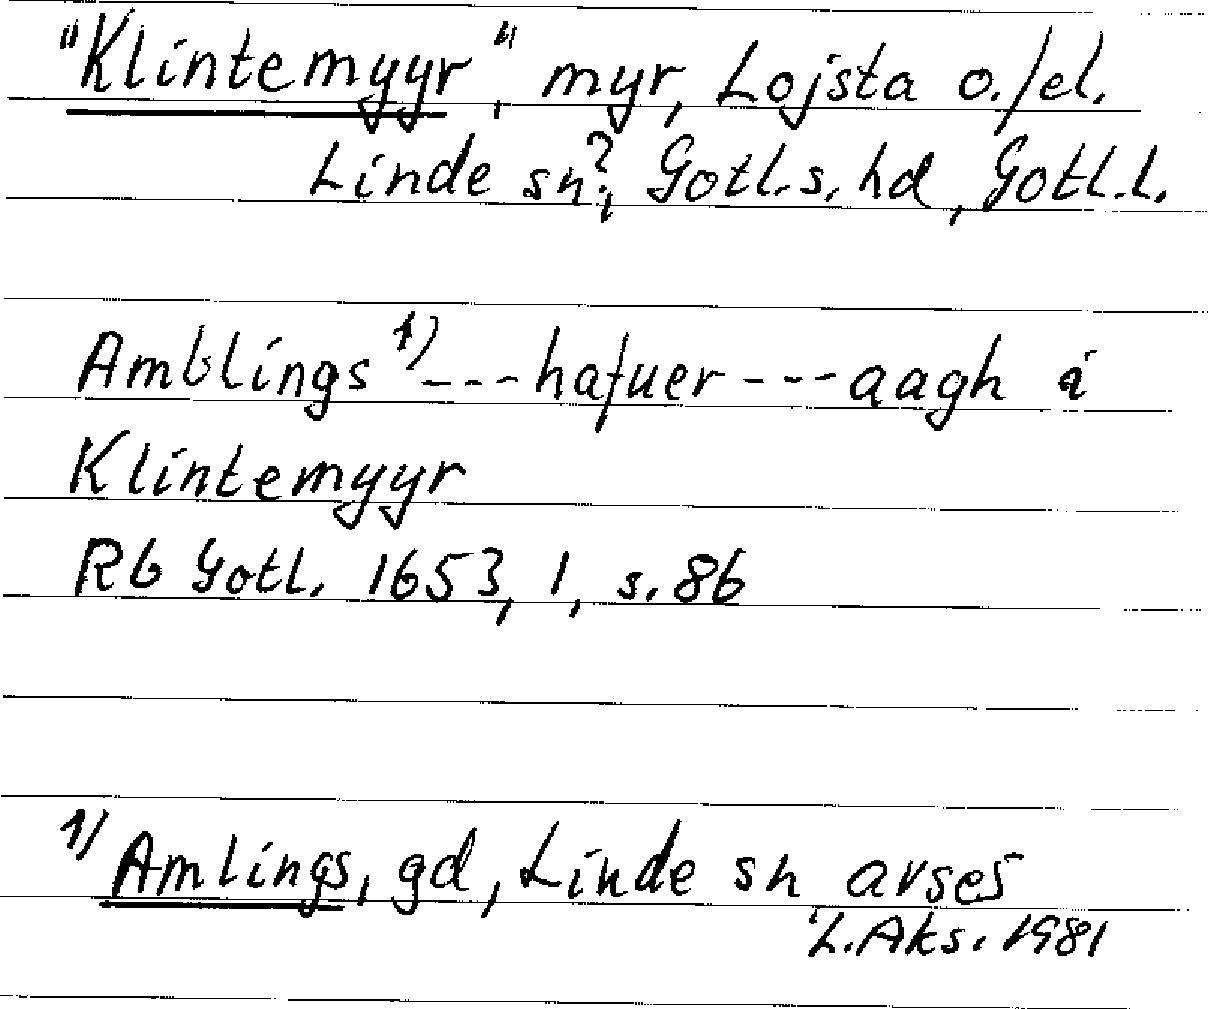 "Klintemyyr", myr, Lojsta o./el.
Linde sn?, Gotl.s.hd, Gotl.l.
Amblings 1) --- hafuer --- aagh i
Klintemyyr
Rb Gotl. 1653, 1, s. 86
1) Amlings, gd, Linde sn avses
L.Aks. 1981